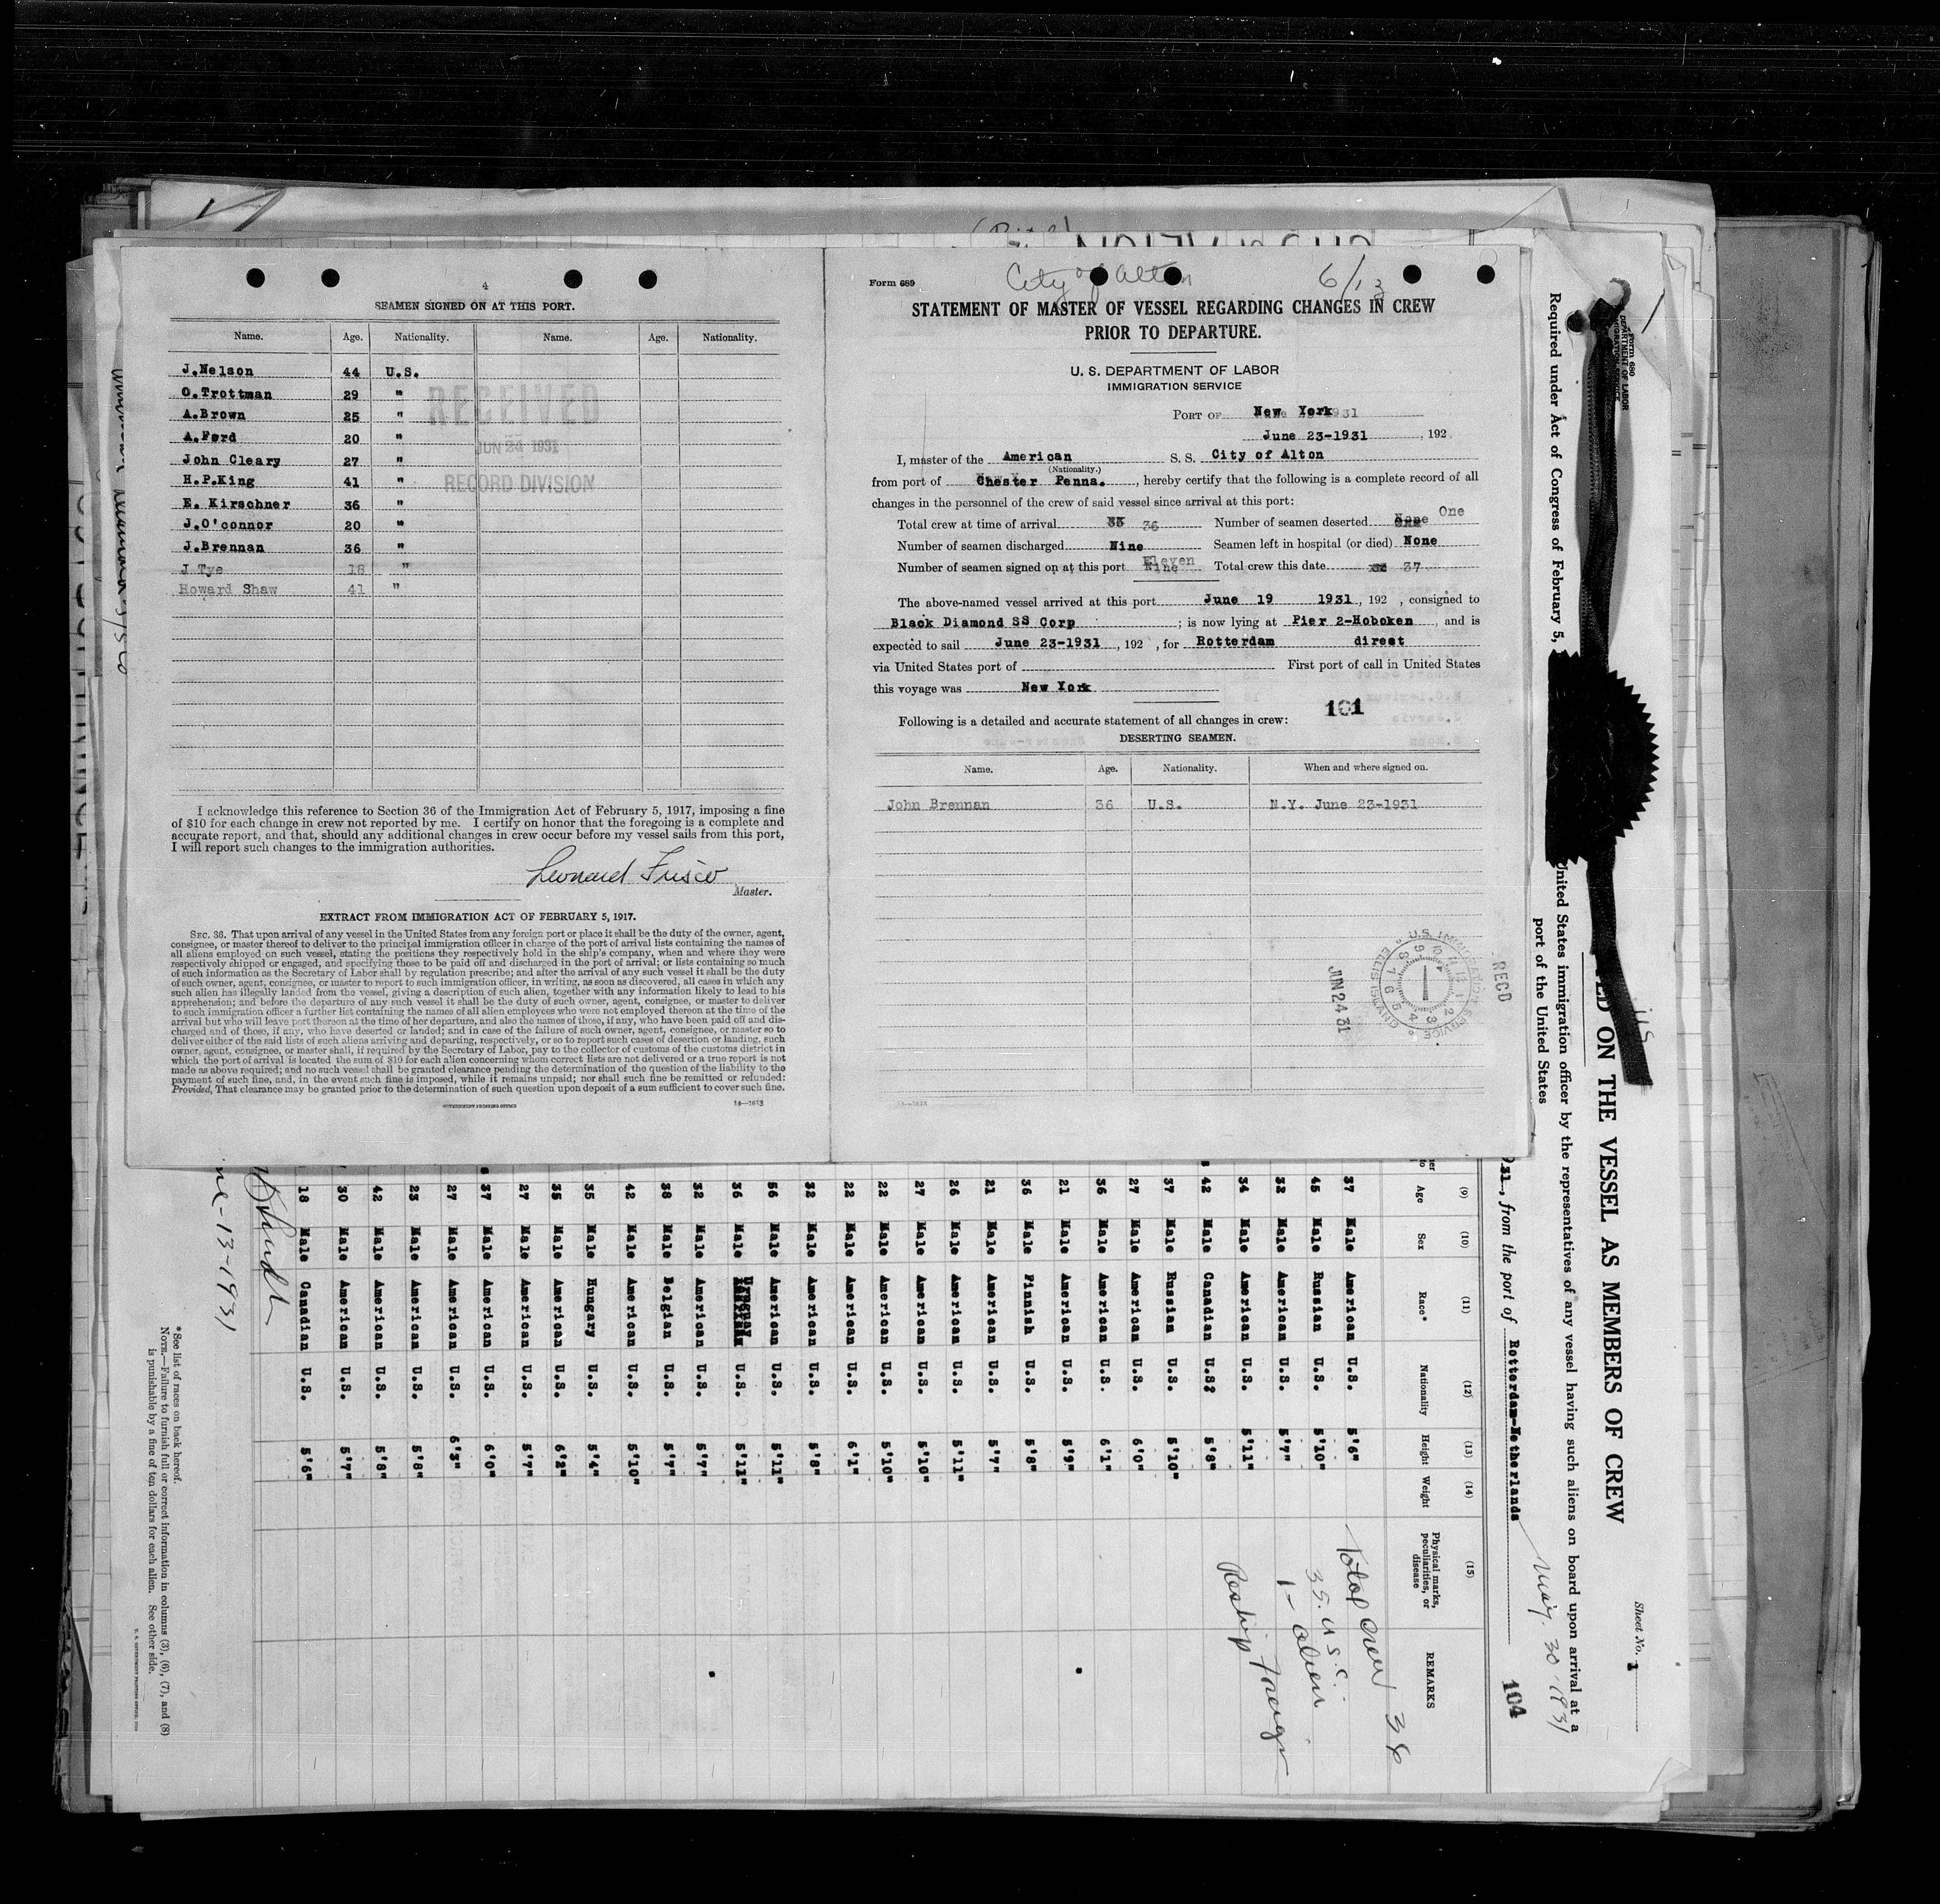 4
SEAMEN SIGNED ON AT THIS PORT.
Name. Age. Nationality. Name. Age. Nationality.
J.Nelson 44 U.S.
O.Trottman 29 "
A.Brown 25 "
A.Ford 20 "
John Cleary 27 "
H.P.King 41 "
E. Kirschner 36 "
J.O'connor 20 "
J.Brennan 36 "
J Tye 18 "
Howard Shaw 41 "
RECEIVED
JUN 24 1931
RECORD DIVISION
I acknowledge this reference to Section 36 of the Immigration Act of February 5, 1917, imposing a fine
of $10 for each change in crew not reported by me. I certify on honor that the foregoing is a complete and
accurate report, and that, should any additional changes in crew occur before my vessel sails from this port,
I will report such changes to the immigration authorities.
Leonard Frisco
Master.
EXTRACT FROM IMMIGRATION ACT OF FEBRUARY 5, 1917.
SEC. 36. That upon arrival of any vessel in the United States from any foreign port or place it shall be the duty of the owner, agent,
consignee, or master thereof to deliver to the principal immigration officer in charge of the port of arrival lists containing the names of
all aliens employed on such vessel, stating the positions they respectively hold in the ship's company, when and where they were
respectively shipped or engaged, and specifying those to be paid off and discharged in the port of arrival; or lists containing so much
of such information as the Secretary of Labor shall by regulation prescribe; and after the arrival of any such vessel it shall be the duty
of such owner, agent, consignee, or master to report to such immigration officer, in writing, as soon as discovered, all cases in which any
such alien has illegally landed from the vessel, giving a description of such alien, together with any information likely to lead to his
apprehension; and before the departure of any such vessel it shall be the duty of such owner, agent, consignee, or master to deliver
to such immigration officer a further list containing the names of all alien employees who were not employed thereon at the time of the
arrival but who will leave port thereon at the time of her departure, and also the names of those, if any, who have been paid off and dis-
charged and of those, if any, who have deserted or landed; and in case of the failure of such owner, agent, consignee, or master so to
deliver either of the said lists of such aliens arriving and departing, respectively, or so to report such cases of desertion or landing, such
owner, agent, consignee, or master shall, if required by the Secretary of Labor, pay to the collector of customs of the customs district in
which the port of arrival is located the sum of $10 for each alien concerning whom correct lists are not delivered or a true report is not
made as above required; and no such vessel shall be granted clearance pending the determination of the question of the liability to the
payment of such fine, and, in the event such fine is imposed, while it remains unpaid; nor shall such fine be remitted or refunded:
Provided, That clearance may be granted prior to the determination of such question upon deposit of a sum sufficient to cover such fine.
GOVERNMENT PRINTING OFFICE 14—1613
Form 689
City of Alton 6/13
STATEMENT OF MASTER OF VESSEL REGARDING CHANGES IN CREW
PRIOR TO DEPARTURE.
U. S. DEPARTMENT OF LABOR
IMMIGRATION SERVICE
PORT OF New York
June 23-1931, 192
I, master of the American S. S. City of Alton
(Nationality.)
from port of Chester Penna., hereby certify that the following is a complete record of all
changes in the personnel of the crew of said vessel since arrival at this port:
Total crew at time of arrival 36 Number of seamen deserted One
Number of seamen discharged Nine Seamen left in hospital (or died) None
Number of seamen signed on at this port Nine Eleven Total crew this date 37
The above-named vessel arrived at this port June 19 1931, 192 , consigned to
Black Diamond SS Corp ; is now lying at Pier 2-Hoboken, and is
expected to sail June 23-1931, 192 , for Rotterdam direct
via United States port of First port of call in United States
this voyage was New York
101
Following is a detailed and accurate statement of all changes in crew:
DESERTING SEAMEN.
Name. Age. Nationality. When and where signed on.
John Brennan 36 U.S. N.Y. June 23-1931
RECD
JUN 24 31
14—1613
Form 680
DEPARTMENT OF LABOR
IMMIGRATION SERVICE
Sheet No. 1
ON THE VESSEL AS MEMBERS OF CREW
Required under Act of Congress of February 5, United States immigration officer by the representatives of any vessel having such aliens on board upon arrival at a
port of the United States
31, from the port of Rotterdam-Netherlands May. 30-1931
104
(9) (10) (11) (12) (13) (14) (15)
Age Sex Race* Nationality Height Weight Physical marks, peculiarities, or disease REMARKS
37 Male American U.S. 5'6"
45 Male Russian U.S. 5'10"
32 Male American U.S. 5'7"
34 Male American U.S. 5'11"
42 Male Canadian U.S? 5'8"
37 Male Russian U.S. 5'10"
27 Male American U.S. 6'0"
36 Male American U.S. 6'1"
21 Male American U.S. 5'9"
36 Male Finnish U.S. 5'8"
21 Male American U.S. 5'7"
26 Male American U.S. 5'11"
27 Male American U.S. 5'10"
22 Male American U.S. 5'10"
22 Male American U.S. 6'1"
32 Male American U.S. 5'8"
56 Male American U.S. 5'11"
36 Male Uruguay U.S. 5'11"
32 Male American U.S. 5'7"
38 Male Belgian U.S. 5'7"
42 Male American U.S. 5'10"
35 Male Hungary U.S. 5'4"
35 Male American U.S. 6'2"
27 Male American U.S. 5'7"
37 Male American U.S. 6'0"
27 Male American U.S. 6'3"
23 Male American U.S. 5'8"
42 Male American U.S. 5'8"
30 Male American U.S. 5'7"
18 Male Canadian U.S. 5'6"
Total crew 36
35. U S C.
1 - alien
Reship Foreign
13-1931
*See list of races on back hereof.
NOTE.—Failure to furnish full or correct information in columns (3), (6), (7), and (8)
is punishable by a fine of ten dollars for each alien. See other side.